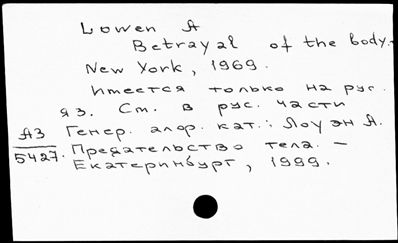 Lowen A
Betrayal of the body.-
New York, 1969.
Имеется только на рус.
яз. См. в рус. части
А3 Генер. алфр. кат.: Лоуэн А.
5427. Предательство тела. -
Екатеринбург, 1999.